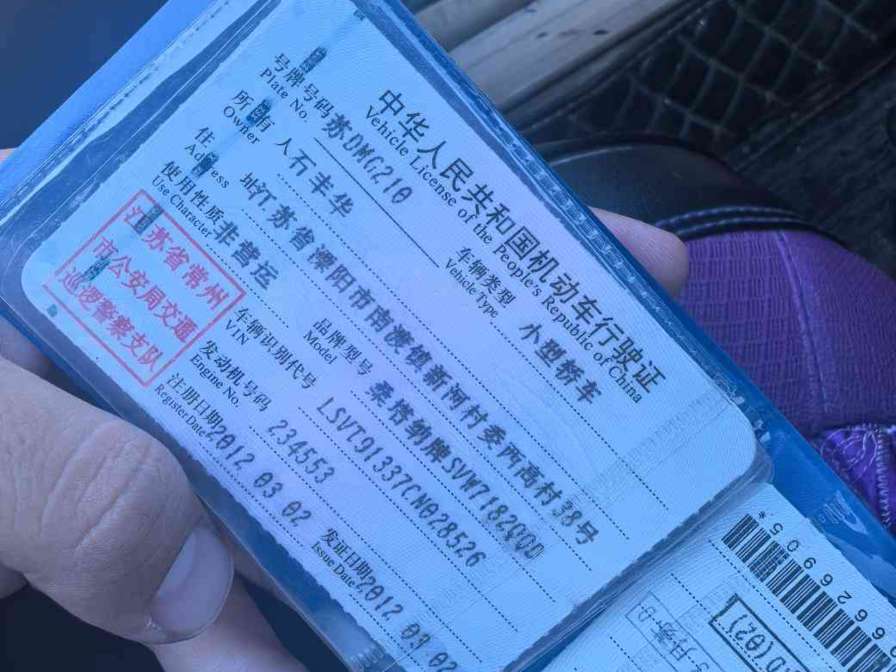 中华人民共和国机动车行驶证
Vehicle License of the People's Republic of China
号牌号码 苏DMG210 车辆类型 小型轿车
Plate No. Vehicle Type
所有人 石丰华
Owner
住址 江苏省溧阳市南渡镇新河村委西高村38号
Address
使用性质 非营运 品牌型号 桑塔纳牌SVW7182QQD
Use Character Model
车辆识别代号 LSVT91337CN028526
VIN
发动机号码 234553
Engine No.
注册日期 2012 03 02 发证日期 2012 03 02
Register Date Issue Date
江苏省常州
市公安局交通
巡逻警察支队